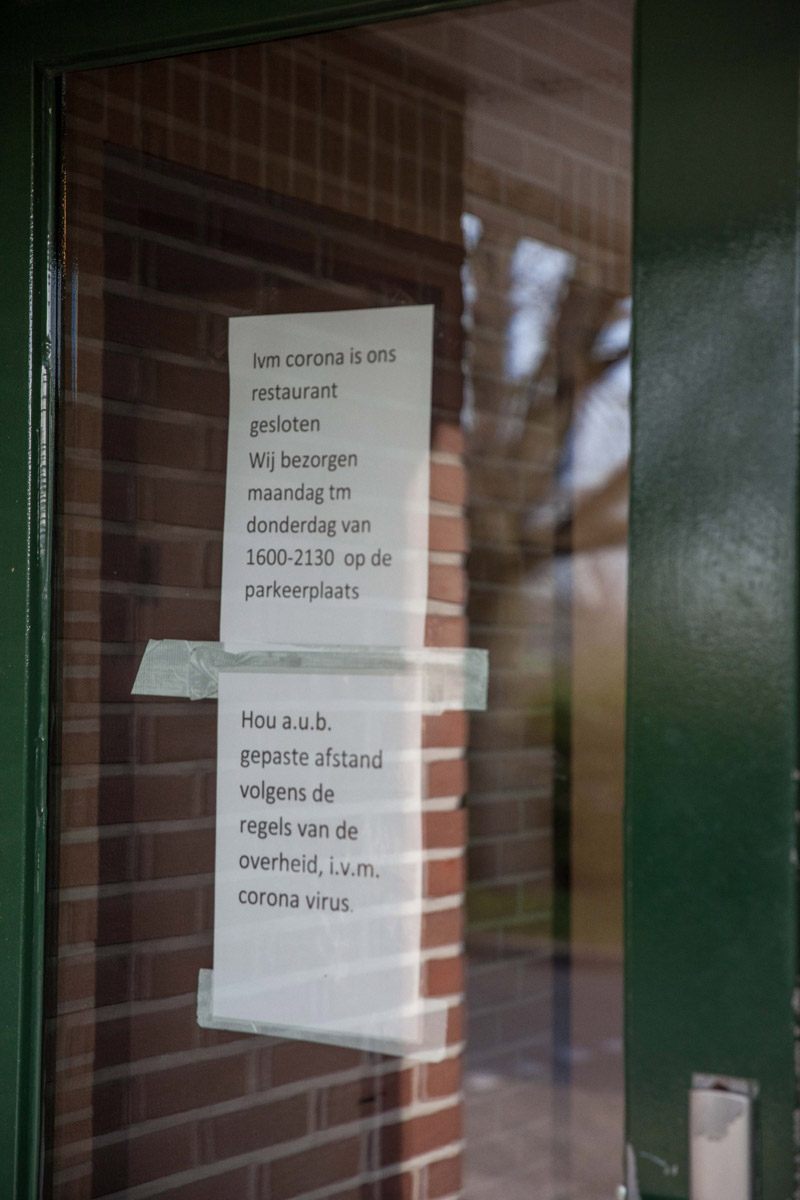 Ivm corona is ons
restaurant
gesloten
Wij bezorgen
maandag tm
donderdag van
1600-2130 op de
parkeerplaats
Hou a.u.b.
gepaste afstand
volgens de
regels van de
overheid, i.v.m.
corona virus.